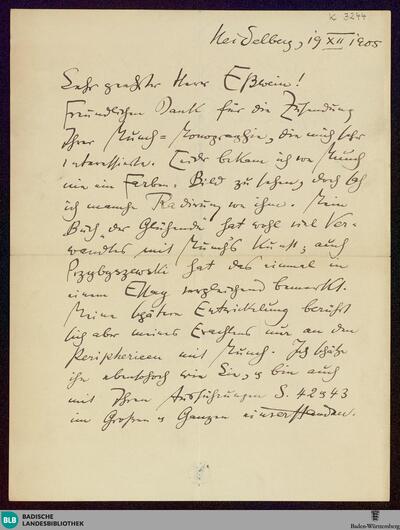 K 3244
Heidelberg, 19 XII 1905
Sehr geehrter Herr Eßwein!
Freundlichen Dank für die Zusendung
Ihrer Munch-Monographie, die mich sehr
interessierte. Leider bekam ich von Munch
nie ein Farben-Bild zu sehen, doch sah
ich manche Radirung von ihm. Mein
Buch „der Glühende" hat wohl viel Ver-
wandtes mit Munch's Kunst; auch
Przybyszewski hat das einmal in
einem Essay vergleichend bemerkt.
Meine spätere Entwickelung berührt
sich aber meines Erachtens nur an den
Peripherieen mit Munch. Ich schätze
ihn ebenso hoch wie Sie, u bin auch
mit Ihren Ausführungen S. 42 u 43
im Großen u Ganzen einverstanden.
BLB
BADISCHE
LANDESBIBLIOTHEK
Baden-Württemberg